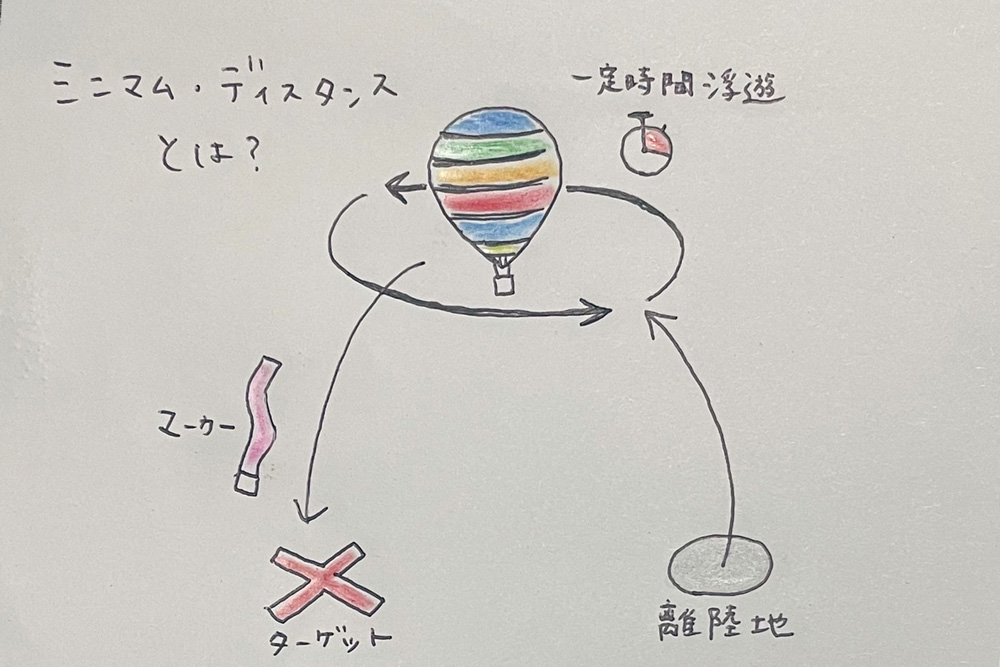 ミニマム・ディスタンス
とは?
一定時間浮遊
マーカー
ターゲット
離陸地